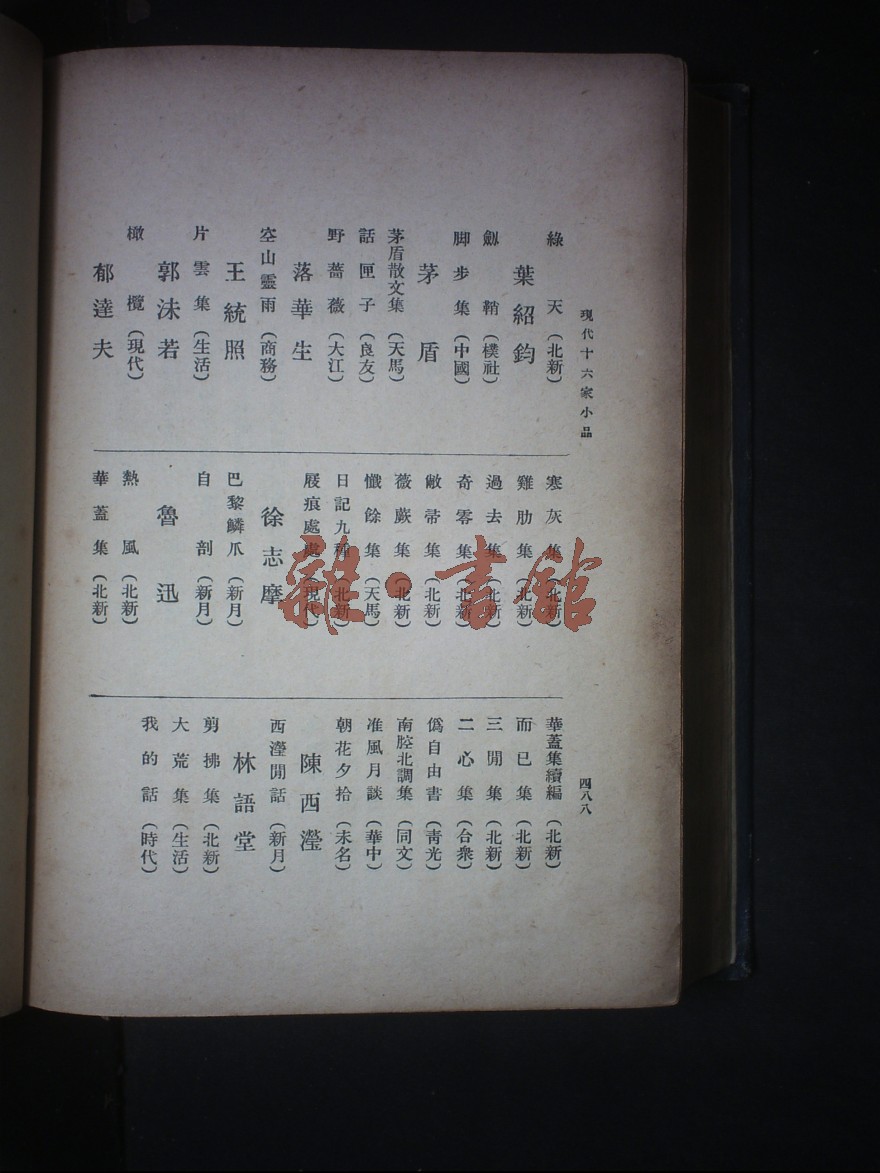 現代十六家小品
綠天(北新)
葉紹鈞
劍鞘(樸社)
脚步集(中國)
茅盾
茅盾散文集(天馬)
話匣子(良友)
野薔薇(大江)
落華生
空山靈雨(商務)
王統照
片雲集(生活)
郭沫若
橄欖(現代)
郁達夫
寒灰集(北新)
雞肋集(北新)
過去集(北新)
奇零集(北新)
敝帚集(北新)
薇蕨集(北新)
懺餘集(天馬)
日記九種(北新)
屐痕處處(現代)
徐志摩
巴黎鱗爪(新月)
自剖(新月)
魯迅
熱風(北新)
華蓋集(北新)
華蓋集續編(北新)
而已集(北新)
三閒集(北新)
二心集(合衆)
僞自由書(青光)
南腔北調集(同文)
准風月談(華中)
朝花夕拾(未名)
陳西瀅
西瀅閒話(新月)
林語堂
剪拂集(北新)
大荒集(生活)
我的話(時代)
四八八
龍·書館